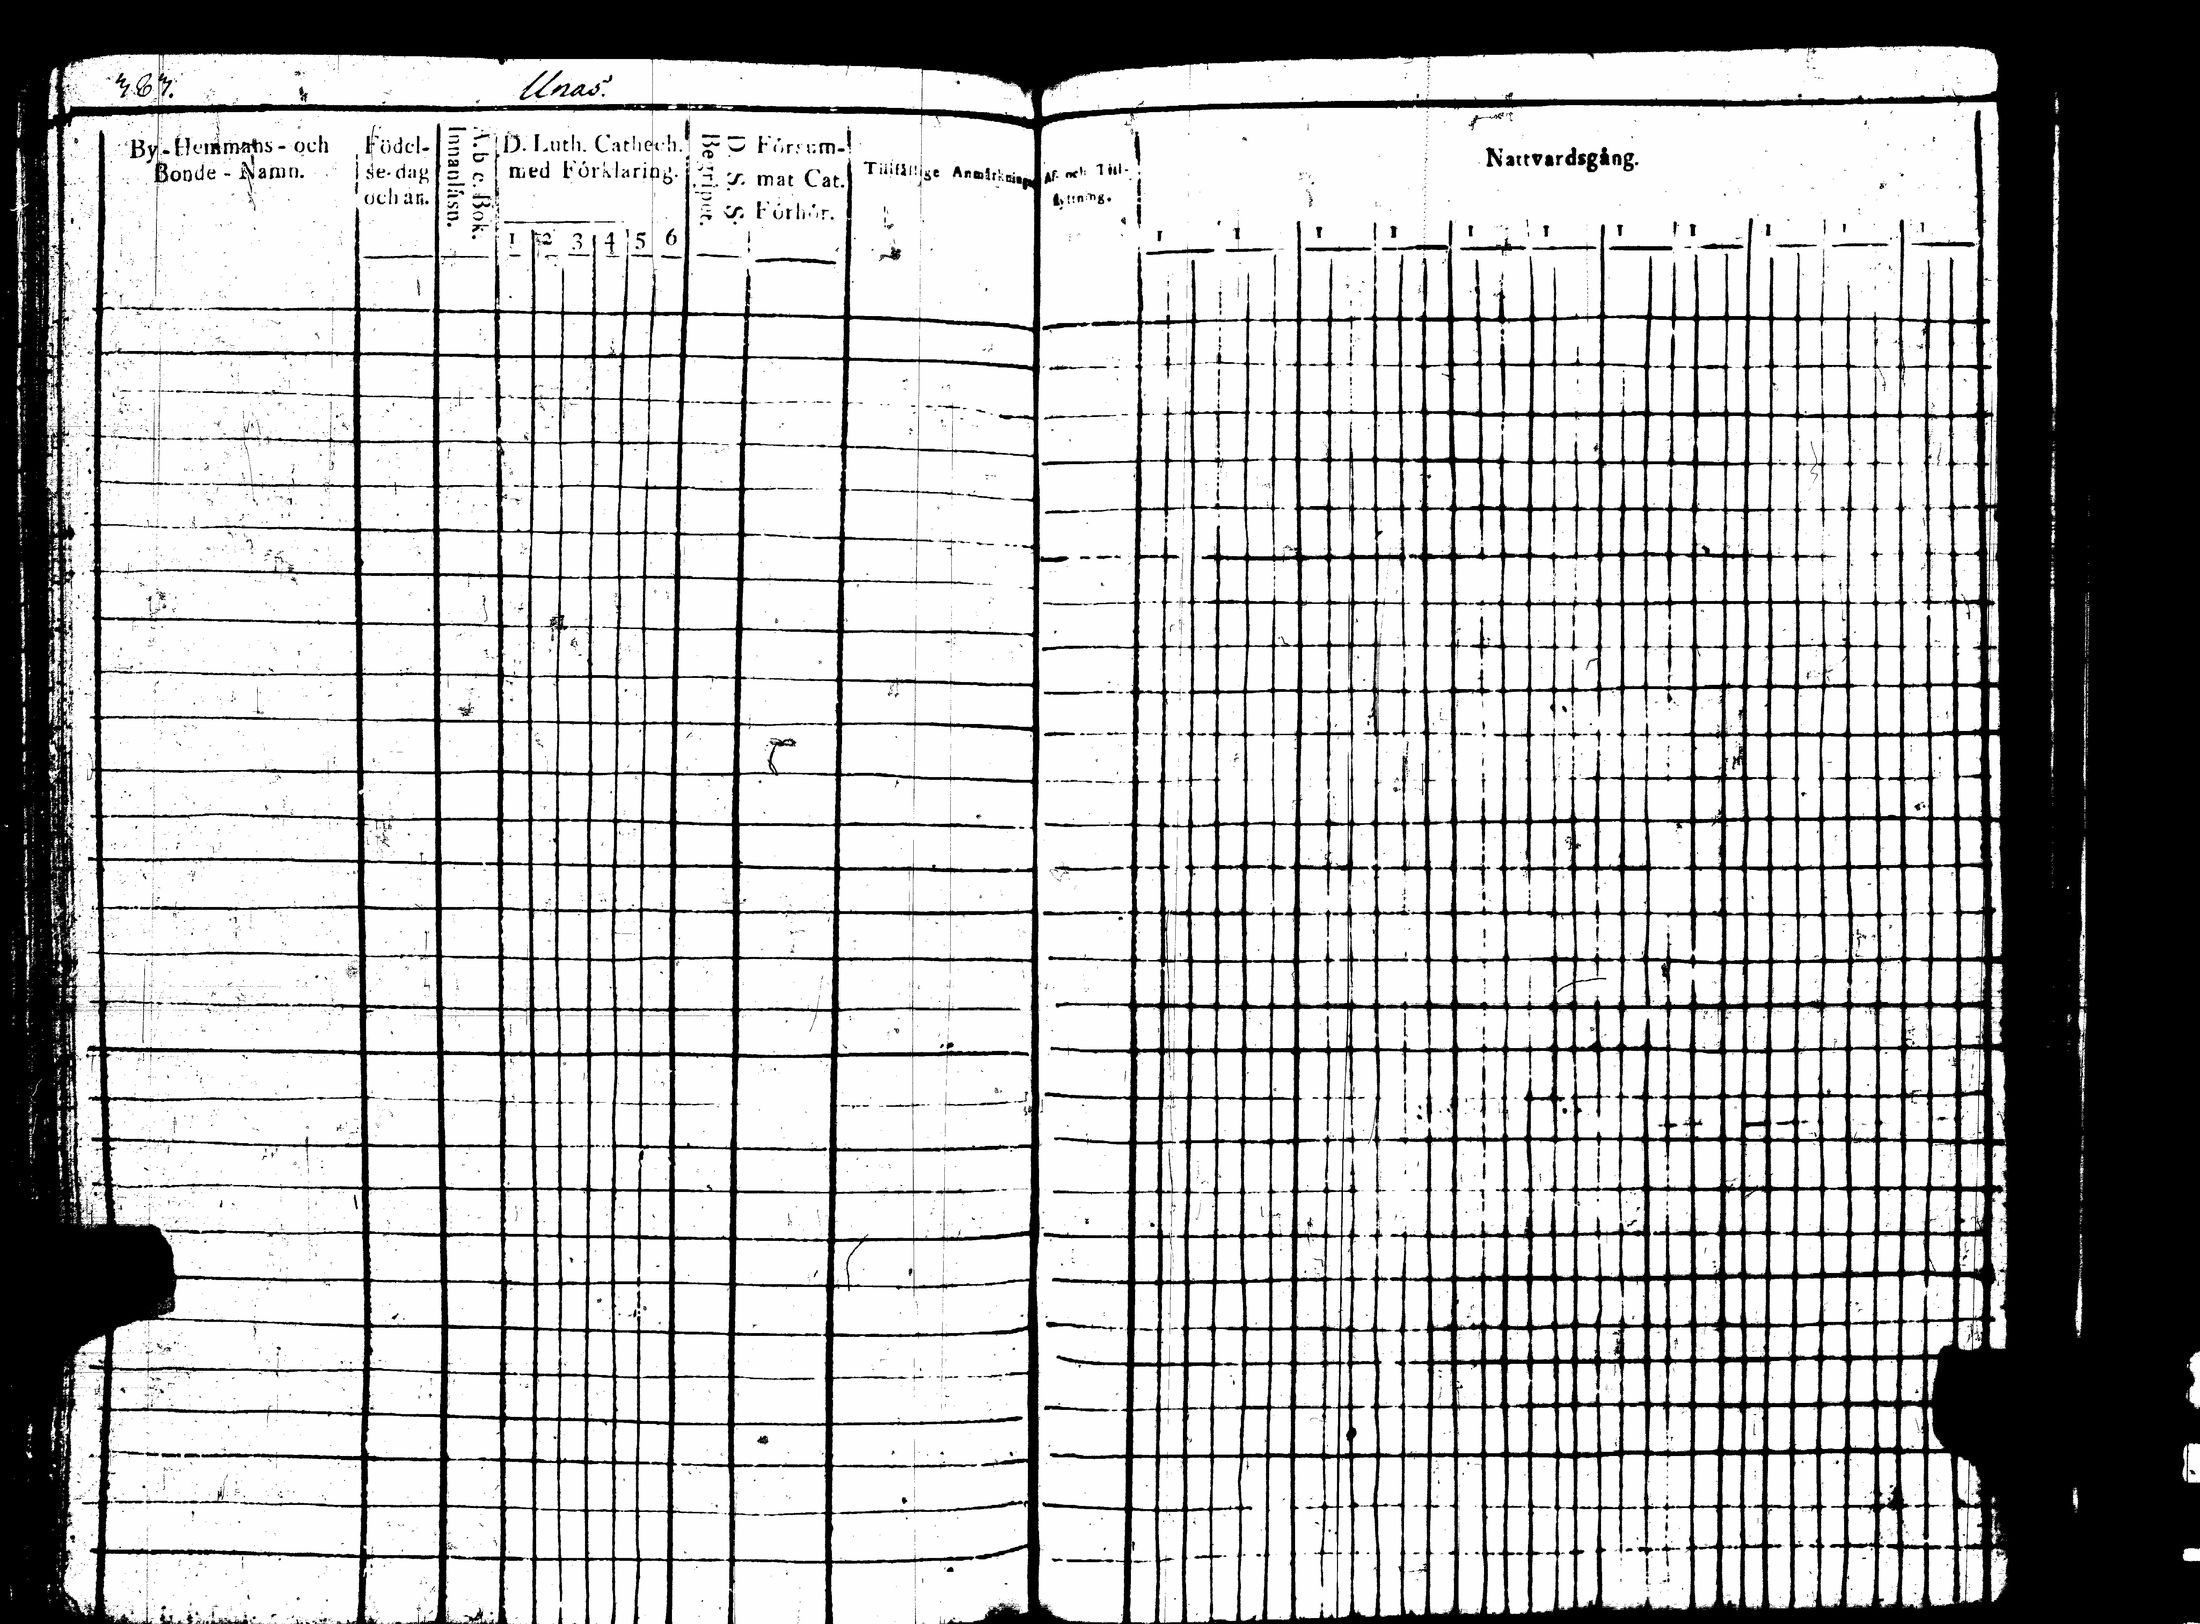 Unas.
By-Hemmans- och
Bonde-Namn.
Födel-
se-dag
och år.
A. b. c. Bok.
Innanläsn.
D. Luth. Cathech.
med Förklaring.
1 2 3 4 5 6
D. S. S.
Begripet.
Försum-
mat Cat.
Förhör.
Tillfällige Anmärkningar
Af- och Till-
flyttning.
Nattvardsgång.
1 1 1 1 1 1 1 1 1 1 1